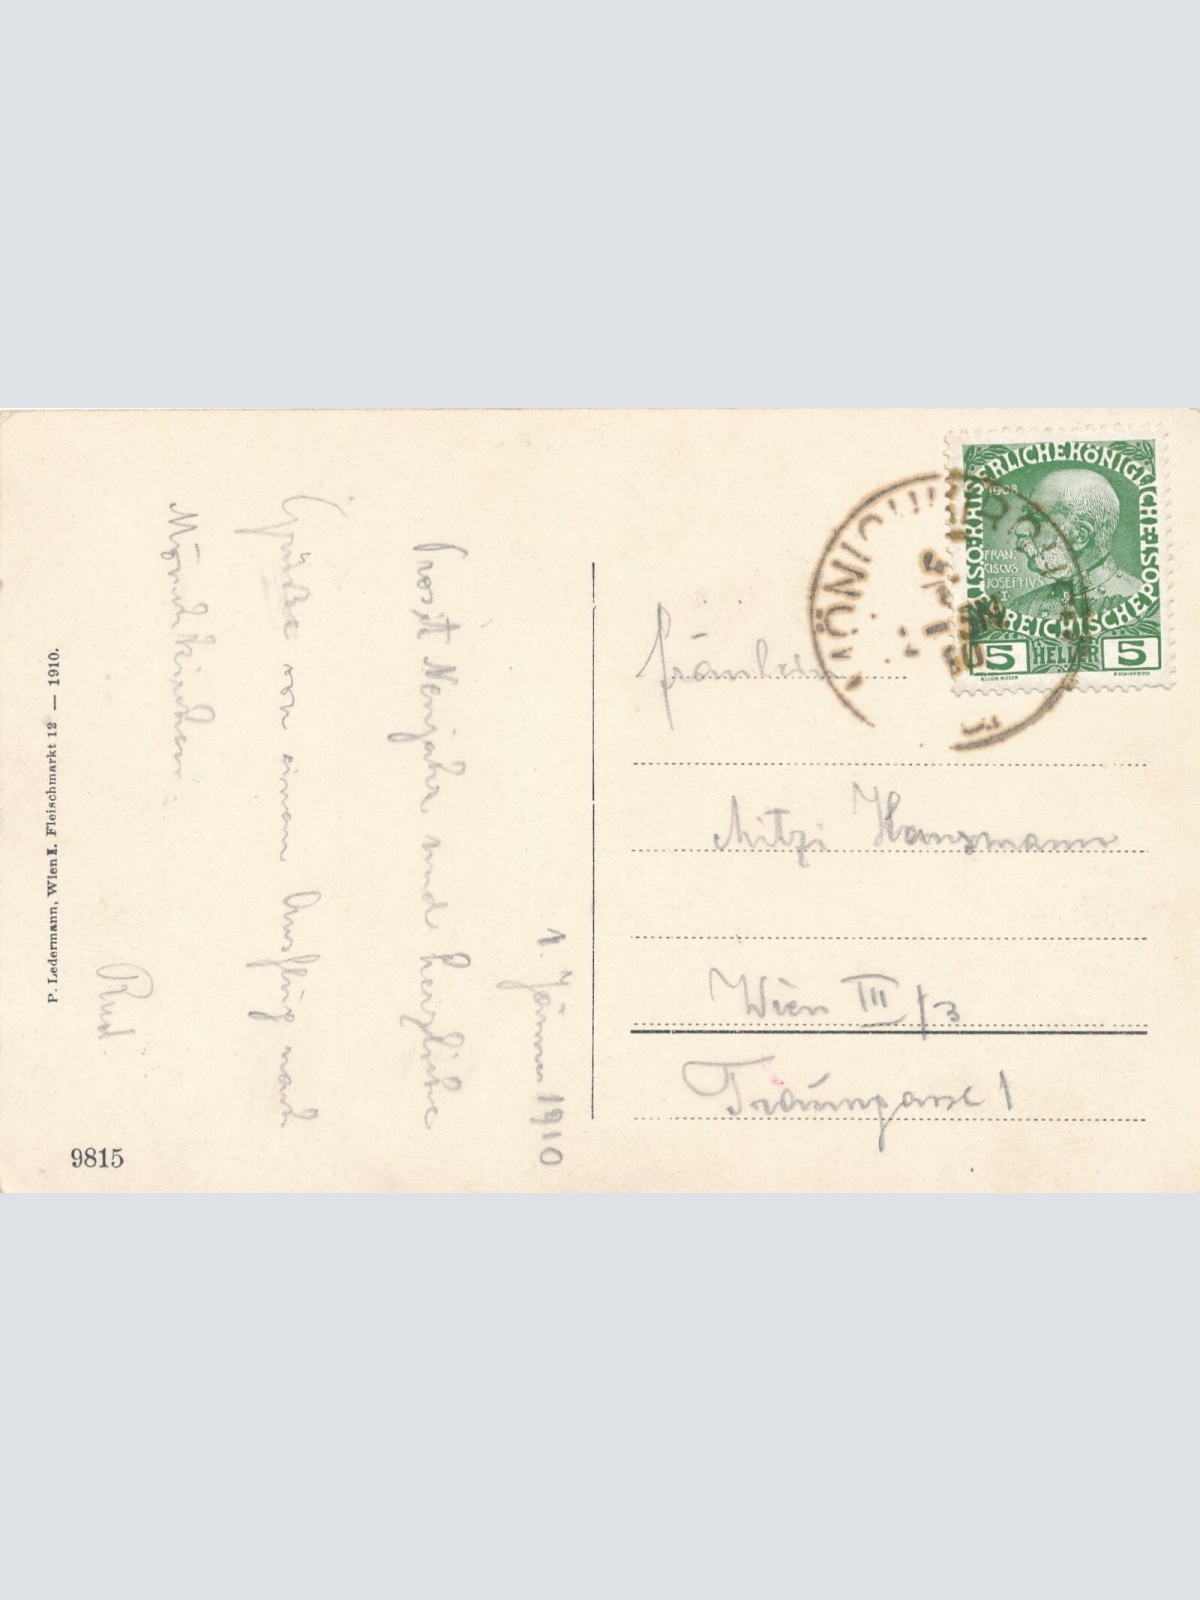 1. Jänner 1910
Prosit Neujahr und herzliche
Grüße von einem Ausflug nach
Mönichkirchen.
Rud.
P. Ledermann, Wien I. Fleischmarkt 12 — 1910.
9815
KAISERLICHE KÖNIGLICHE ÖSTERREICHISCHE POST
1908
FRAN-
CISCVS
JOSEPHVS
I.
5 HELLER 5
Fräulein
Mitzi
Wien III/3
1